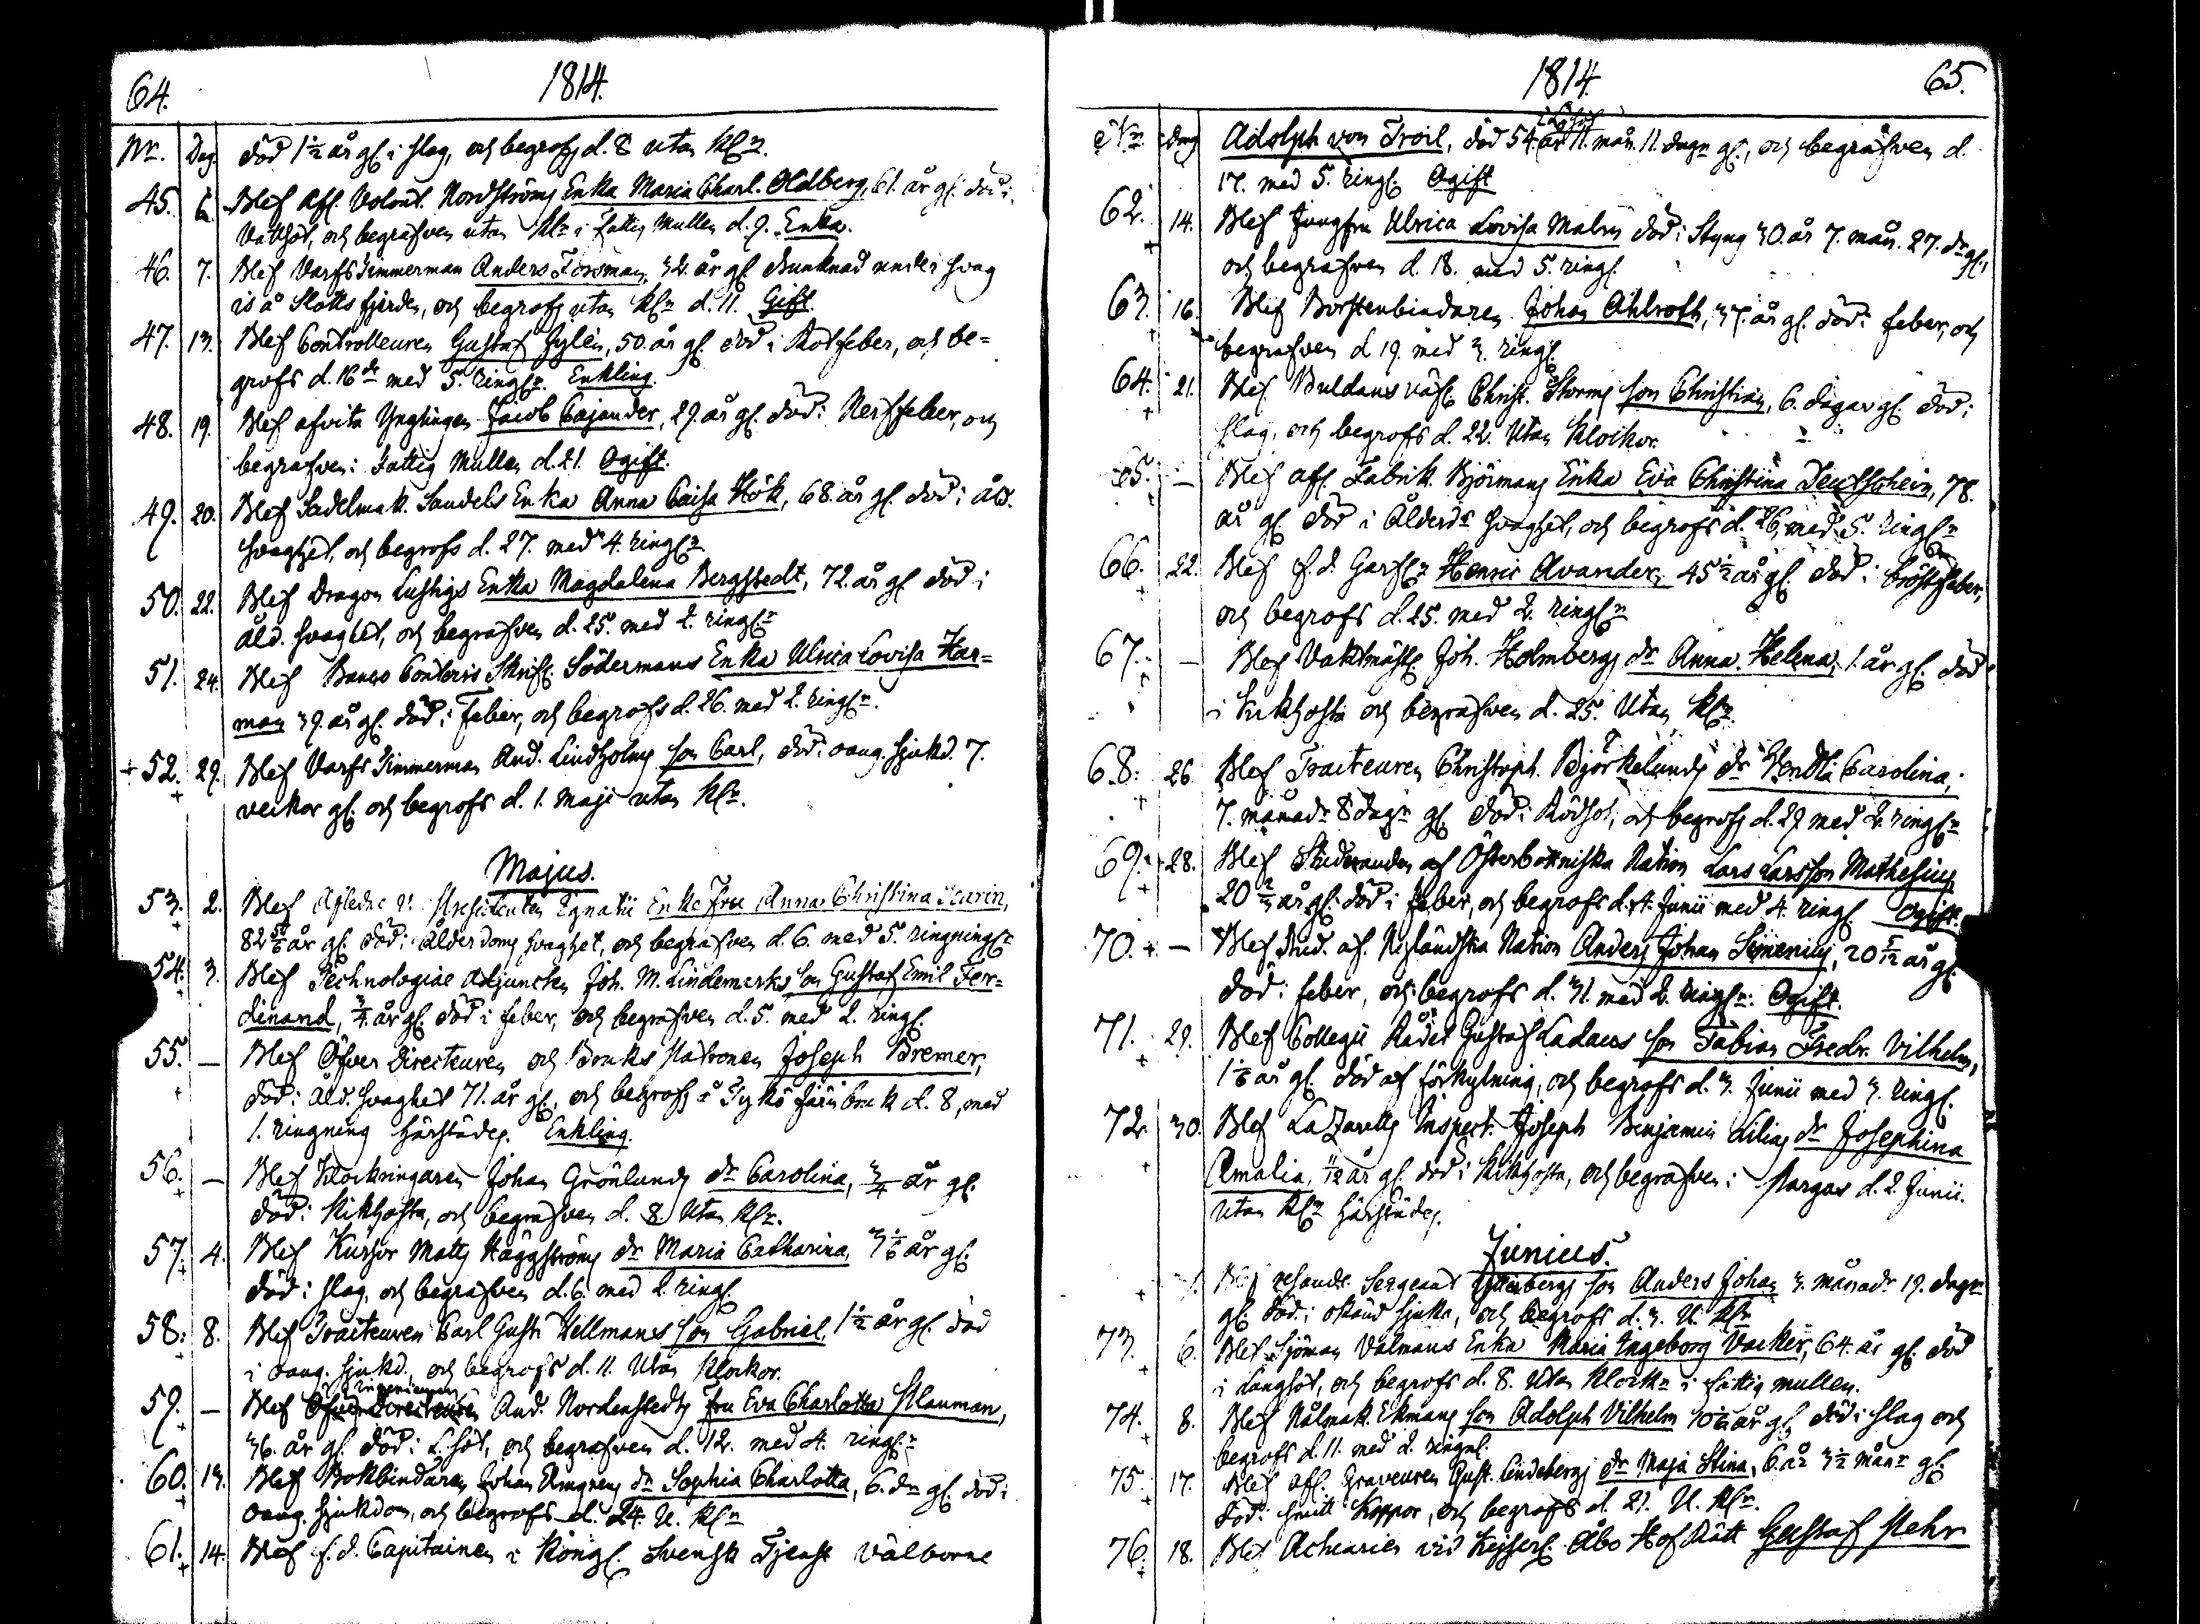 64. 1814.
Nr. Dag. död 1½ år gl. i slag, och begrofs d. 8 utan Kl:r.
45. 6. Blef Afl. Volont. Nordströms Enka Maria Charl. Oldberg, 61. år gl. död i
Vattsot, och begrafven utan Kl:r i fattig mullen d. 9. Enka.
46. 7. Blef Varfs Timmerman Anders Forsman, 32. år gl. drunknad under svag
is å Slotts fjerden, och begrofs utan Kl:r d. 11. Gift.
47. 13. Blef Controlleuren Gustaf Gylén, 50. år gl. död i Rötfeber, och be=
grofs d. 16de med 5. ringr. Enkling.
48. 19. Blef afvita Ynglingen Jacob Cajander, 29. år gl. död i Nerffeber, och
begrafven i Fattig Mullen d. 21. Ogift.
49. 20. Blef Sadelmak. Sandels Enka Anna Caisa Hök, 68. år gl. död i åld.
svaghet, och begrofs d. 27. med 4. ring:r
50. 22. Blef Dragon Lustigs Enka Magdalena Bergstedt, 72. år gl. död i
åld. svaghet, och begrafven d. 25. med 2. ring:r
51. 24. Blef Banco Contoirs Skrifv. Södermans Enka Ulrica Lovisa Har=
man 39. år gl. död i Feber, och begrofs d. 26. med 2. ring:r.
+ 52. 29. Blef Varfs Timmerman And. Lindholms son Carl, död i oang. sjukd. 7.
veckor gl. och begrofs d. 1. Maji utan Kl:r.
Majus.
53. 2. Blef Afledne Enke Fru Anna Christina
82 5/6 år gl. död i Ålderdoms svaghet, och begrafven d. 6. med 5. ringning:r
54. 3. Blef Technologiae Adjuncten Joh. M. Lindemarks son Gustaf Emil Fer=
dinand, ¾ år gl. död i feber, och begrafven d. 5. med 2. ringl.
55. — Blef Öfver Directeuren och Bruks Patronen Joseph Bremer,
död i åld. svaghet 71. år gl. och begrofs å Tykö järnbruk d. 8, med
1. ringning härstädes. Enkling.
56. — Blef Klockringaren Johan Grönlunds dr Carolina, ¾ år gl.
död i Kikhosta, och begrafven d. 8. Utan Kl:r.
57. 4. Blef Kursor Matts Häggströms dr Maria Catharina, 3 1/6 år gl.
död i slag, och begrafven d. 6. med 2. ringl.
58. 8. Blef Traiteuren Carl Gust. Vellmans son Gabriel, 1½ år gl. död
i oang. sjukd., och begrofs d. 11. Utan Klockor.
59. — Blef And. Nordenstedts Fru Eva Charlotta Stauman,
36. år gl. död i L. sot, och begrafven d. 12. med 4. ring:r
60. 13. Blef Bokbindaren Johan dr Sophia Charlotta, 6. dr gl. död i
oang. sjukdom, och begrofs d. 24. U. Kl:r
61. 14. Blef f. d. Capitainen i Kongl. Svensk Tjenst välborne
1814. 65.
Nr. Dag Adolph von Troil, död 54. år 11. mån. 11. dagr gl., och begrafven d.
17. med 5. ringl. Ogift
62. 14. Blef Jungfru Ulrica Lovisa Malm död i Styng 30. år 7. mån. 27. dr gl.,
och begrafven d. 18. med 5. ringl.
63. 16. Blef Borstenbindaren Johan Ahlroth, 37. år gl. död i feber, och
begrafven d. 19. med 3. ringl.
64. 21. Blef Buldans väfv. Christ. Storms son Christian, 6. dagar gl. död i
slag, och begrofs d. 22. Utan Klockor.
65. — Blef afl. Fabrik. Björmans Enka Eva Christina Deutschein, 78.
år gl. död i Ålderds svaghet, och begrofs d. 26, med 5. ring:r
66. 22. Blef f. d. Garf:r Henric Avander, 45½ år gl. död i bröstfeber,
och begrofs d. 25. med 2. ring:r
67. — Blef Vaktmäst. Joh. Holmbergs dr Anna Helena, 1. år gl. död
i Kikhosta och begrafven d. 25. Utan Kl:r.
68. 26. Blef Traiteuren Christoph. Björkelunds dr Vendla Carolina,
7. månadr 8 dagr gl. död i Rödsot, och begrofs d. 29. med 2. ring:r
69. 28. Blef Studeranden af Österbottniska Nation Lars Larsson Mathesius
20 2/3 år gl. död i feber, och begrofs d. 4. Junii med 4. ringl. Ogift.
70. — Blef Stud. af Nyländska Nation Anders Johan Simenius, 20 5/12 år gl.
död i feber, och begrofs d. 31. med 2. ring:r. Ogift.
71. 29. Blef Collegii Rådet Gustaf Ladaus son Fabian Fredr. Vilhelm,
1 1/6 år gl. död af förkylning, och begrofs d. 3. Junii med 3. ringl.
72. 30. Blef Lazaretts Inspect. Joseph Benjamin Lilias dr Josephina
Amalia, 11/12 år gl. död i Kikhosta, och begrafven i Pargas d. 2. Junii.
utan Kl:r härstädes.
Junius.
1. Blef resande Sergeant son Anders Johan 3. månadr 19. dagr
gl. död i okänd sjukd., och begrofs d. 3. U. Kl:r
73. 6. Blef Sjöman Valmans Enka Maria Ingeborg Vacker, 64. år gl. död
i Lungsot, och begrofs d. 8. Utan Klock:r i fattig mullen.
74. 8. Blef Nålmak. Ekmans son Adolph Vilhelm 10 1/6 år gl. död i slag och
begrofs d. 11. med 2. ringnl.
75. 17. Blef afl. Graveuren Gust. Lindebergs dr Maja Stina, 6. år 3½ månr gl.
död i smitt Koppor, och begrofs d. 21. U. Kl:r.
76. 18. Blef Actuarien vid Keyserl. Åbo Hof Rätt Gustaf Mehr